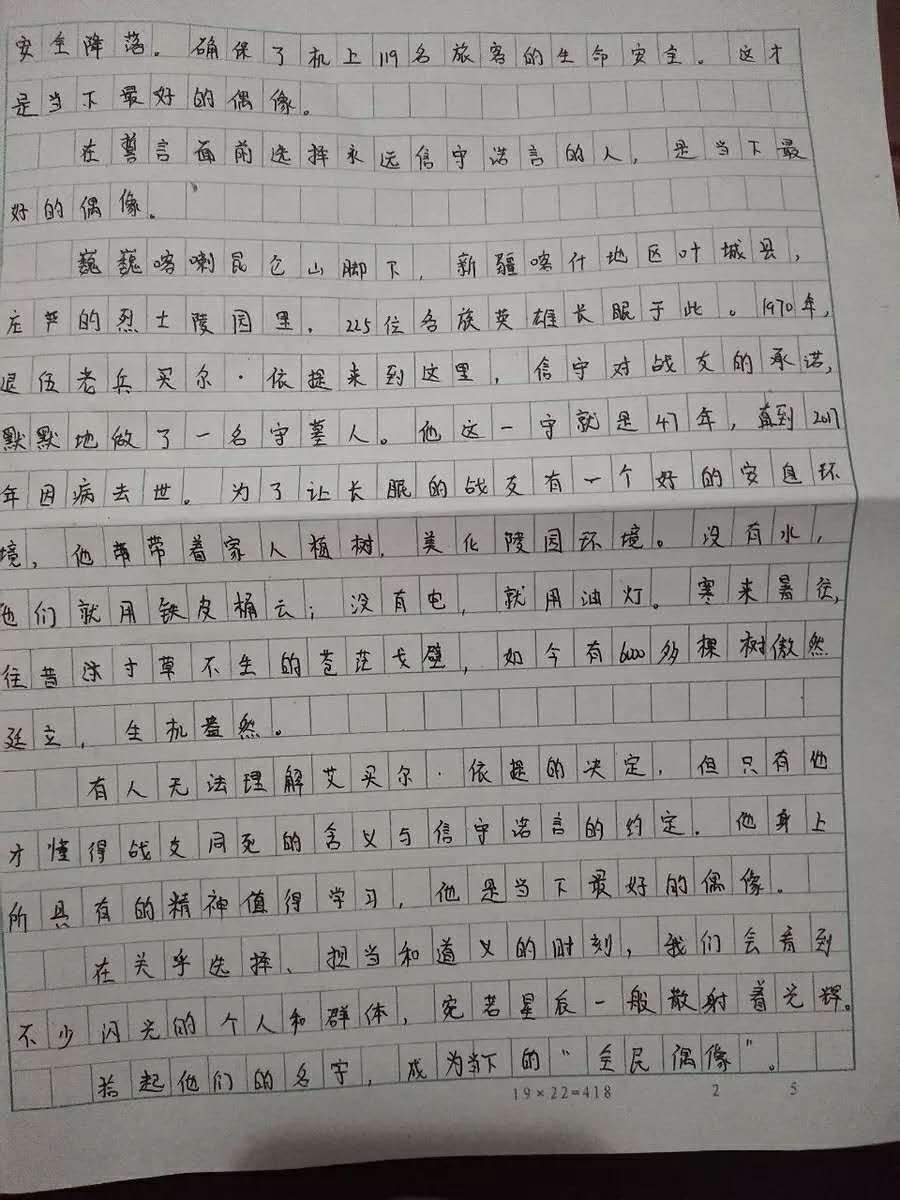 安全降落。确保了机上119名旅客的生命安全。这才
是当下最好的偶像。
在誓言面前选择永远信守诺言的人，是当下最
好的偶像。
巍巍喀喇昆仑山脚下，新疆喀什地区叶城县，
庄严的烈士陵园里，225位各族英雄长眠于此。1970年，
退伍老兵买尔·依提来到这里，信守对战友的承诺，
默默地做了一名守墓人。他这一守就是47年，直到2017
年因病去世。为了让长眠的战友有一个好的安息环
境，他带着家人植树，美化陵园环境。没有水，
他们就用铁皮桶云；没有电，就用油灯。寒来暑往，
往昔寸草不生的苍茫戈壁，如今有6000多棵树傲然
廷立，生机盎然。
有人无法理解艾买尔·依提的决定，但只有他
才懂得战友同死的含义与信守诺言的约定。他身上
所具有的精神值得学习，他是当下最好的偶像。
在关乎选择、担当和道义的时刻，我们会看到
不少闪光的个人和群体，宛若星辰一般散射着光辉。
拾起他们的名字，成为当下的“全民偶像”。
19×22=418 2 5